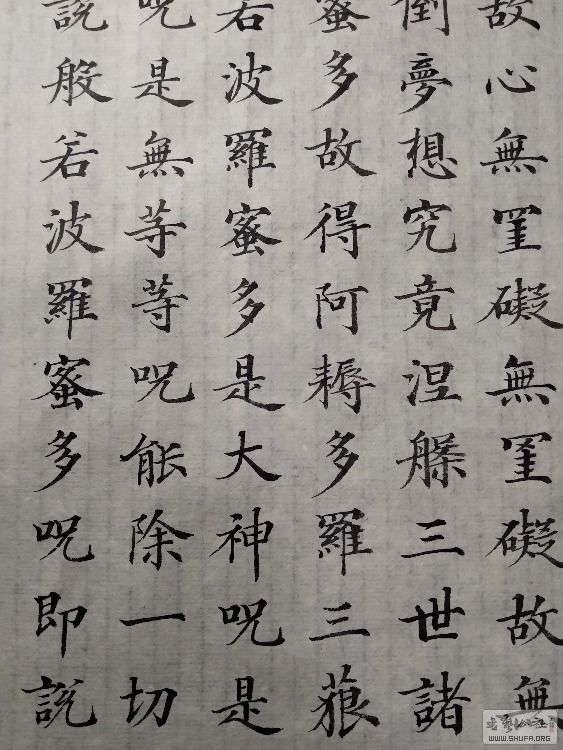 故心無罣礙無罣礙故無
倒夢想究竟涅槃三世諸
蜜多故得阿耨多羅三藐
若波羅蜜多是大神呪是
呪是無等等呪能除一切
說般若波羅蜜多呪即說
WWW.SHUFA.ORG